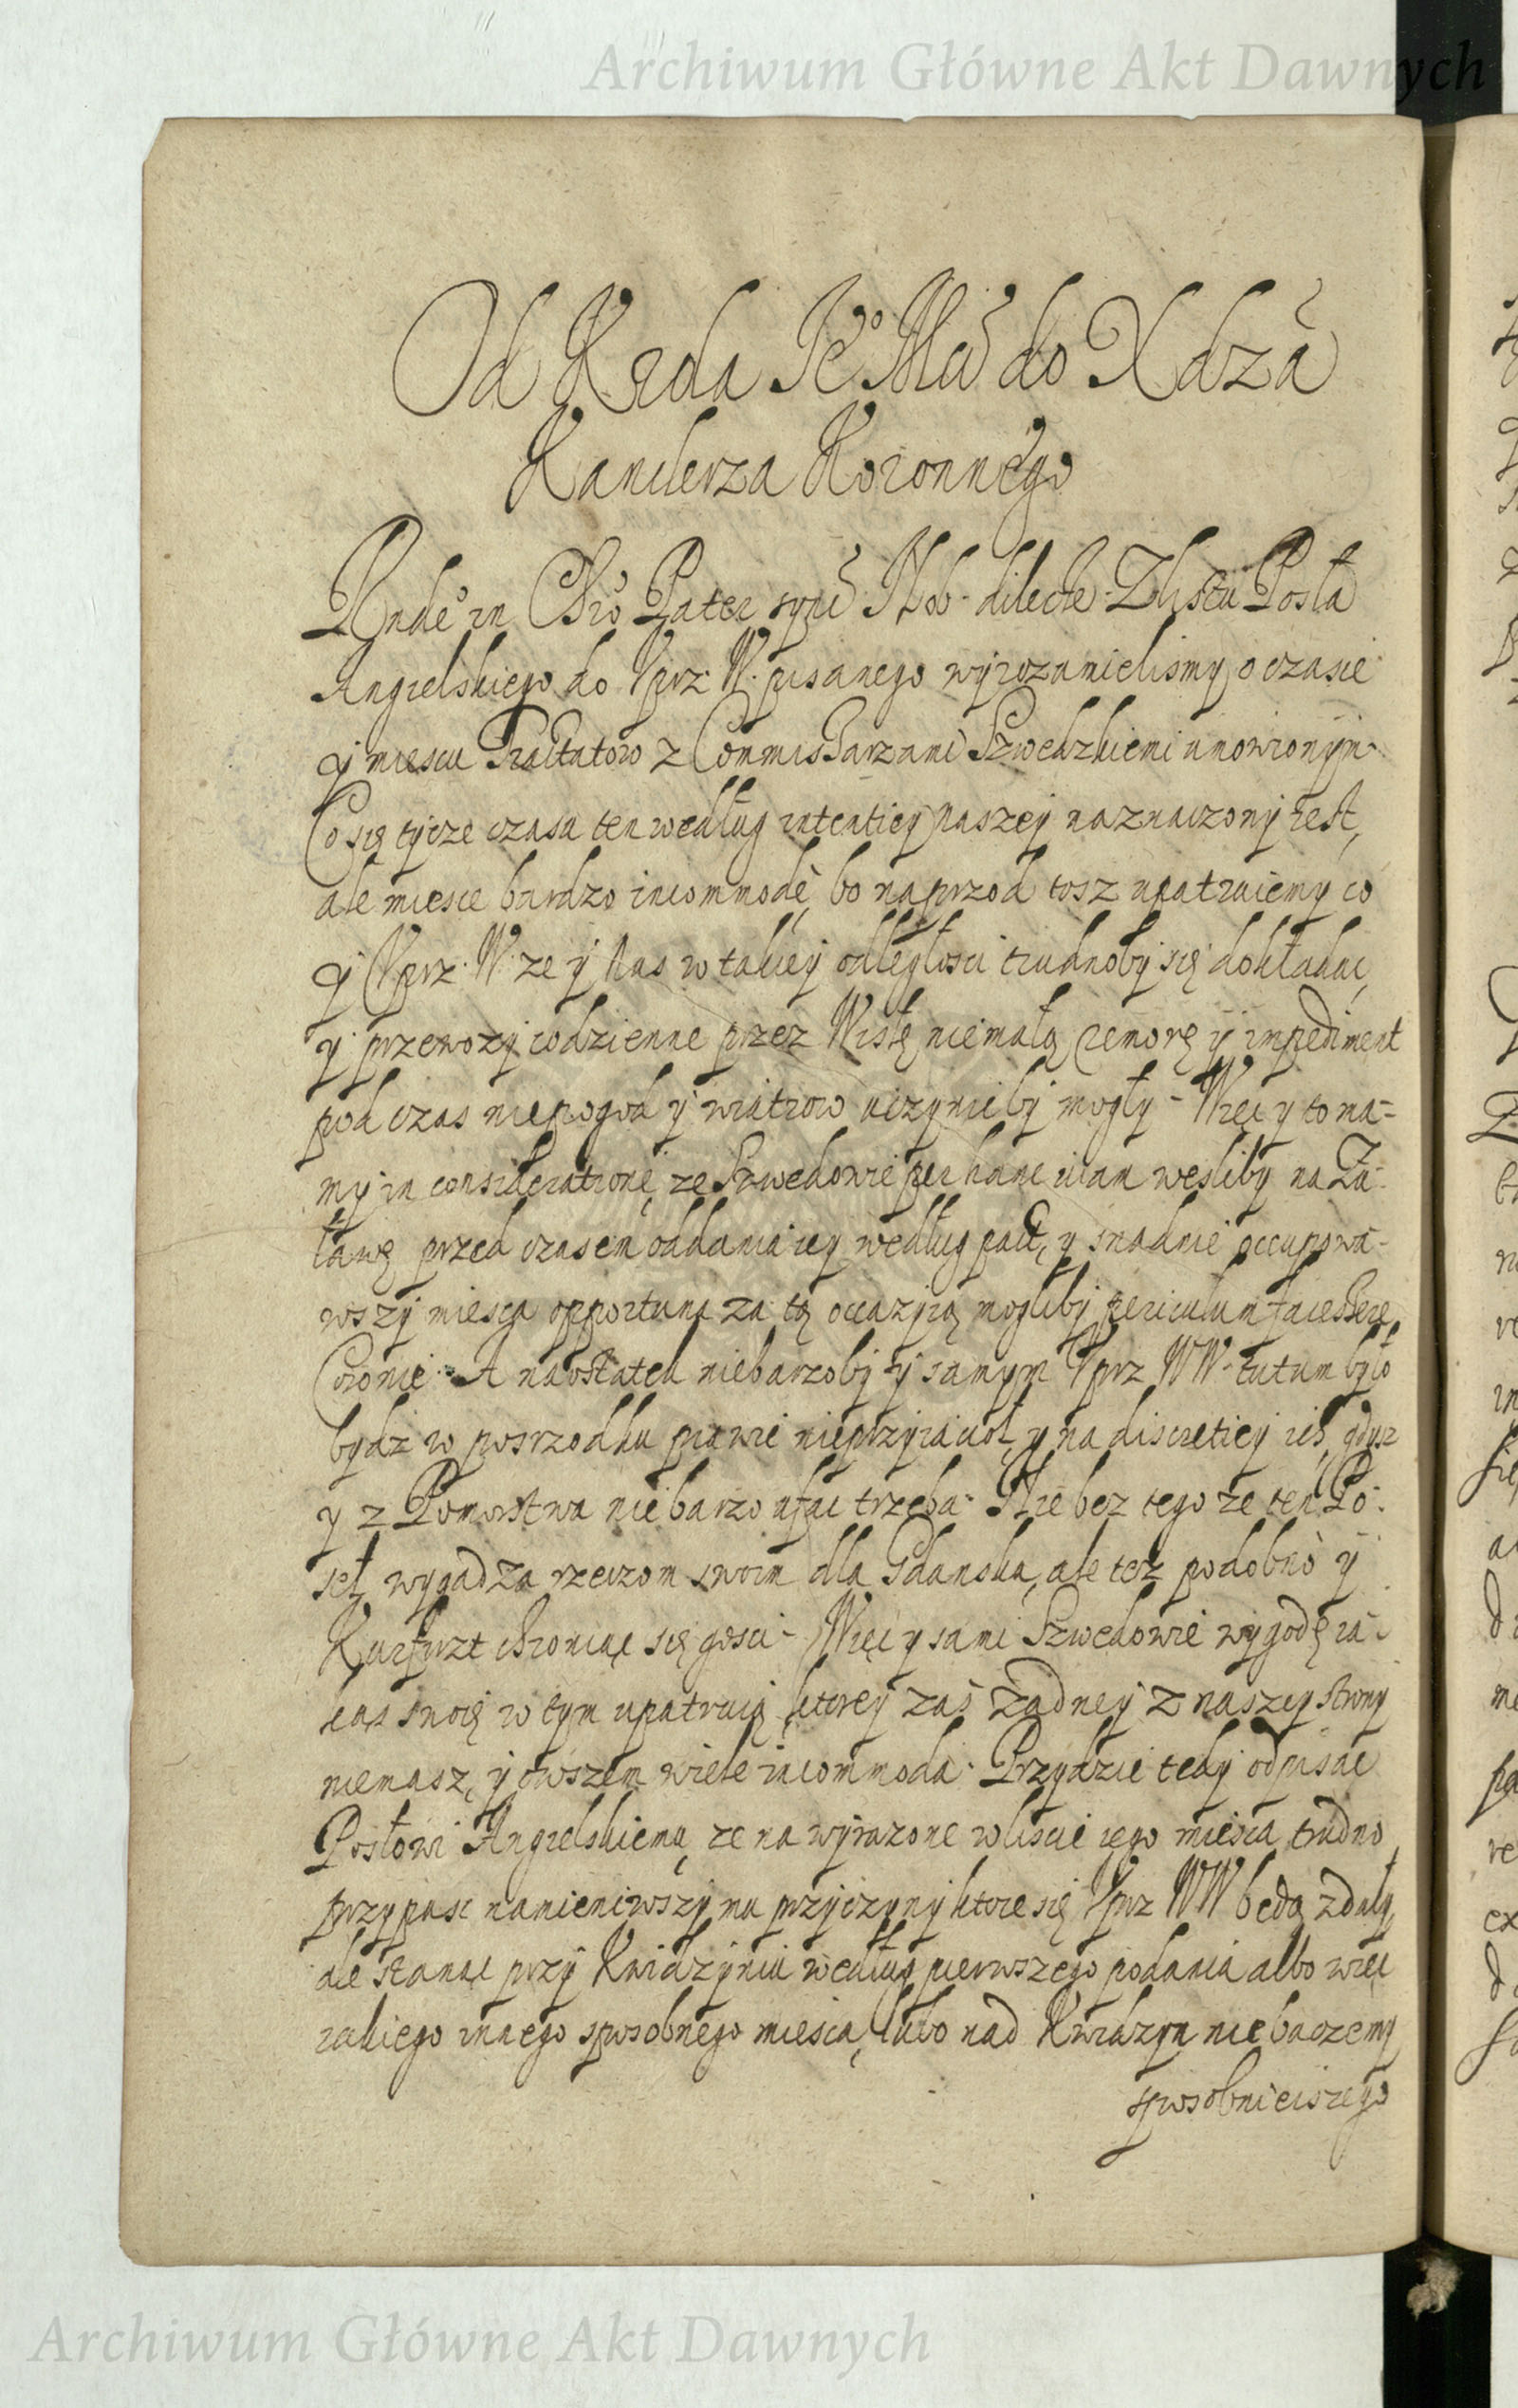 Archiwum Główne Akt Dawnych
Od Krola Jeº Mci do Xdza
Kanclerza Koronnego
Rnde in Chro Pater syncè Nob. dilecte. Z listu Posła
Angielskiego do Uprz: W. pisanego wyrozumielismy o czasie
y miescu Tractatow z Commissarzami Szwedzkiemi umowionym.
Co się tycze czasu ten według intentiey naszey naznaczony iest,
ale miesce bardzo incommode, bo naprzod tosz upatruiemy co
y Uprz. W. ze y Nas w takiey odległosci trudnoby się dokładac,
y przewozy codzienne przez Wisłę niemałą remorę y impediment
pod czas niepogod y wiatrow uczynicby mogły - Więc y to ma=
my in consideratione, ze Szwedowie per hanc viam weszliby na Zu-
ławę przed czasem oddania iey według pact, y snadnie occupowa-
wszy miesca opportuna za tą occazyią mogliby periculum facessere
Coronie. A naostatek niebarzoby y samym Uprz WW. tutum było
bydz w posrzodku prawie nieprzyiacioł, y na discretiey ich, gdysz
y z Pomorstwa nie barzo ufac trzeba. Nie bez tego ze ten Po-
seł wygadza rzeczom swoim dla Gdanska, ale tez podobno y
Kurfirzt chroniąc się gosci - Więc y sami Szwedowie wygodę ia-
kąs swoię w tym upatruią, ktorey zaś zadney z naszey strony
niemasz, y owszem wiele incommoda. Przydzie tedy odpisac
Posłowi Angielskiemu, ze na wyrazone w liscie iego miesca trudno
przypasc namieniwszy mu przyczyny ktore się Uprz WW będą zdały,
ale stanąc przy Kwidzyniu według pierwszego podania albo więc
iakiego inaego sposobnego miesca, lubo nad Kwidzyn nie baczemy
sposobnieiszego
Archiwum Główne Akt Dawnych